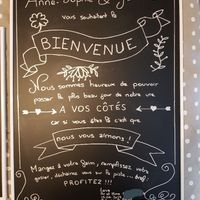 Anne-Sophie &
vous souhaitent la
BIENVENUE
Nous sommes heureux de pouvoir
passer le plus beau jour de notre vie
A VOS CÔTÉS
car si vous êtes là c'est que
nous vous aimons !
Mangez à votre faim, remplissez votre
gosier, déchaînez vous sur la piste - bref :
PROFITEZ !!!